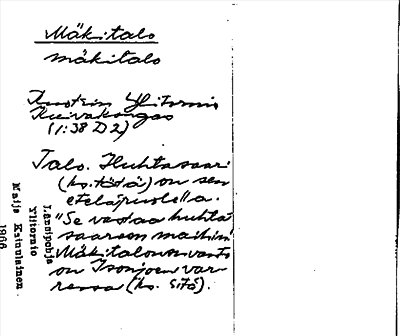 Mäkitalo
mäkitalo
Ruotsin Ylitornio
Kuivakangas
(1:38 D2)
Talo. Huhtasaari
(ks. tätä) on sen
eteläpuolella.
"Se vastaa huhta-
saareen maihin"
Mäkitalon
on Isonjoen var-
ressa (ks. sitä).
Länsipohja
Ylitornio
Maija Kainulainen
1966